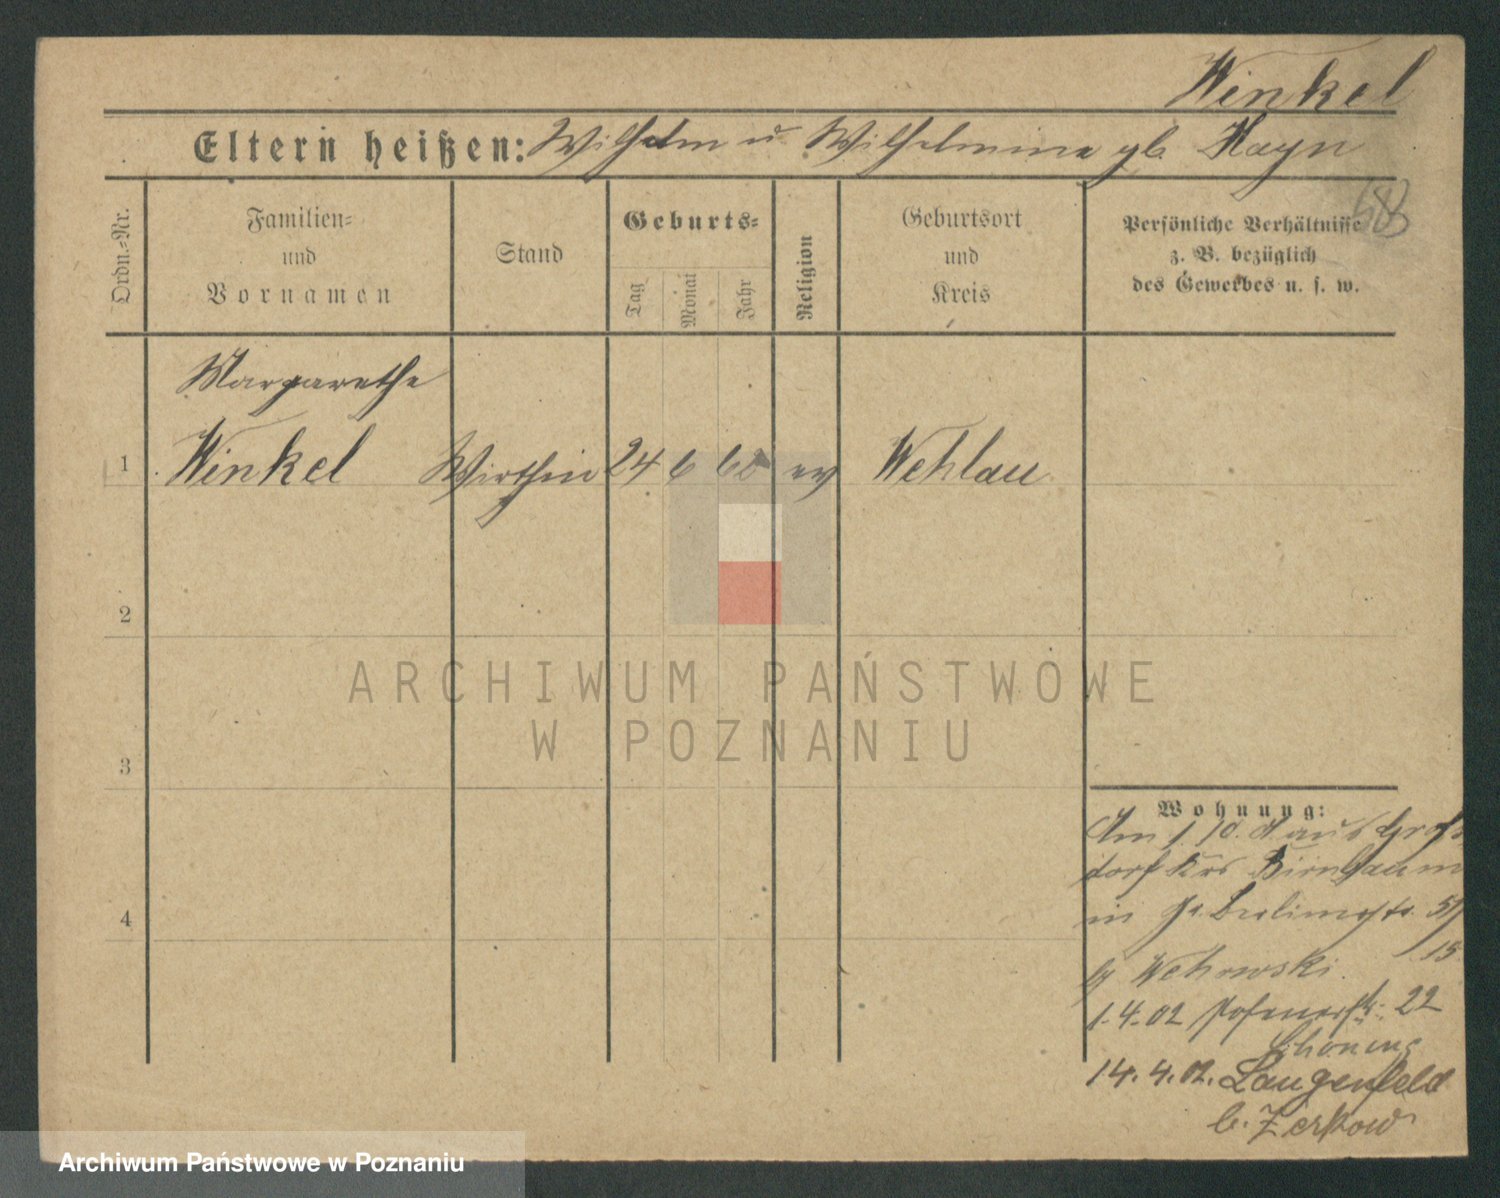 Winkel
Eltern heißen: Wilhelm u Wilhelmine gb Hayn
Ordn.-Nr.
Familien-
und
Vornamen
Stand
Geburts-
Tag
Monat
Jahr
Religion
Geburtsort
und
Kreis
Persönliche Verhältnisse
z. B. bezüglich
des Gewerbes u. s. w.
Margarethe
1 Winkel Wirthin 24 6 ev Wehlau
2
3
4
ARCHIWUM PAŃSTWOWE
W POZNANIU
Wohnung:
Am 1.10. aus Groß
dorf Krs Birnbaum
in Berlinerstr.
15
1.4.02 Posenerstr. 22
Schöning
14.4.02. Langenfeld
b. Zerkow
Archiwum Państwowe w Poznaniu